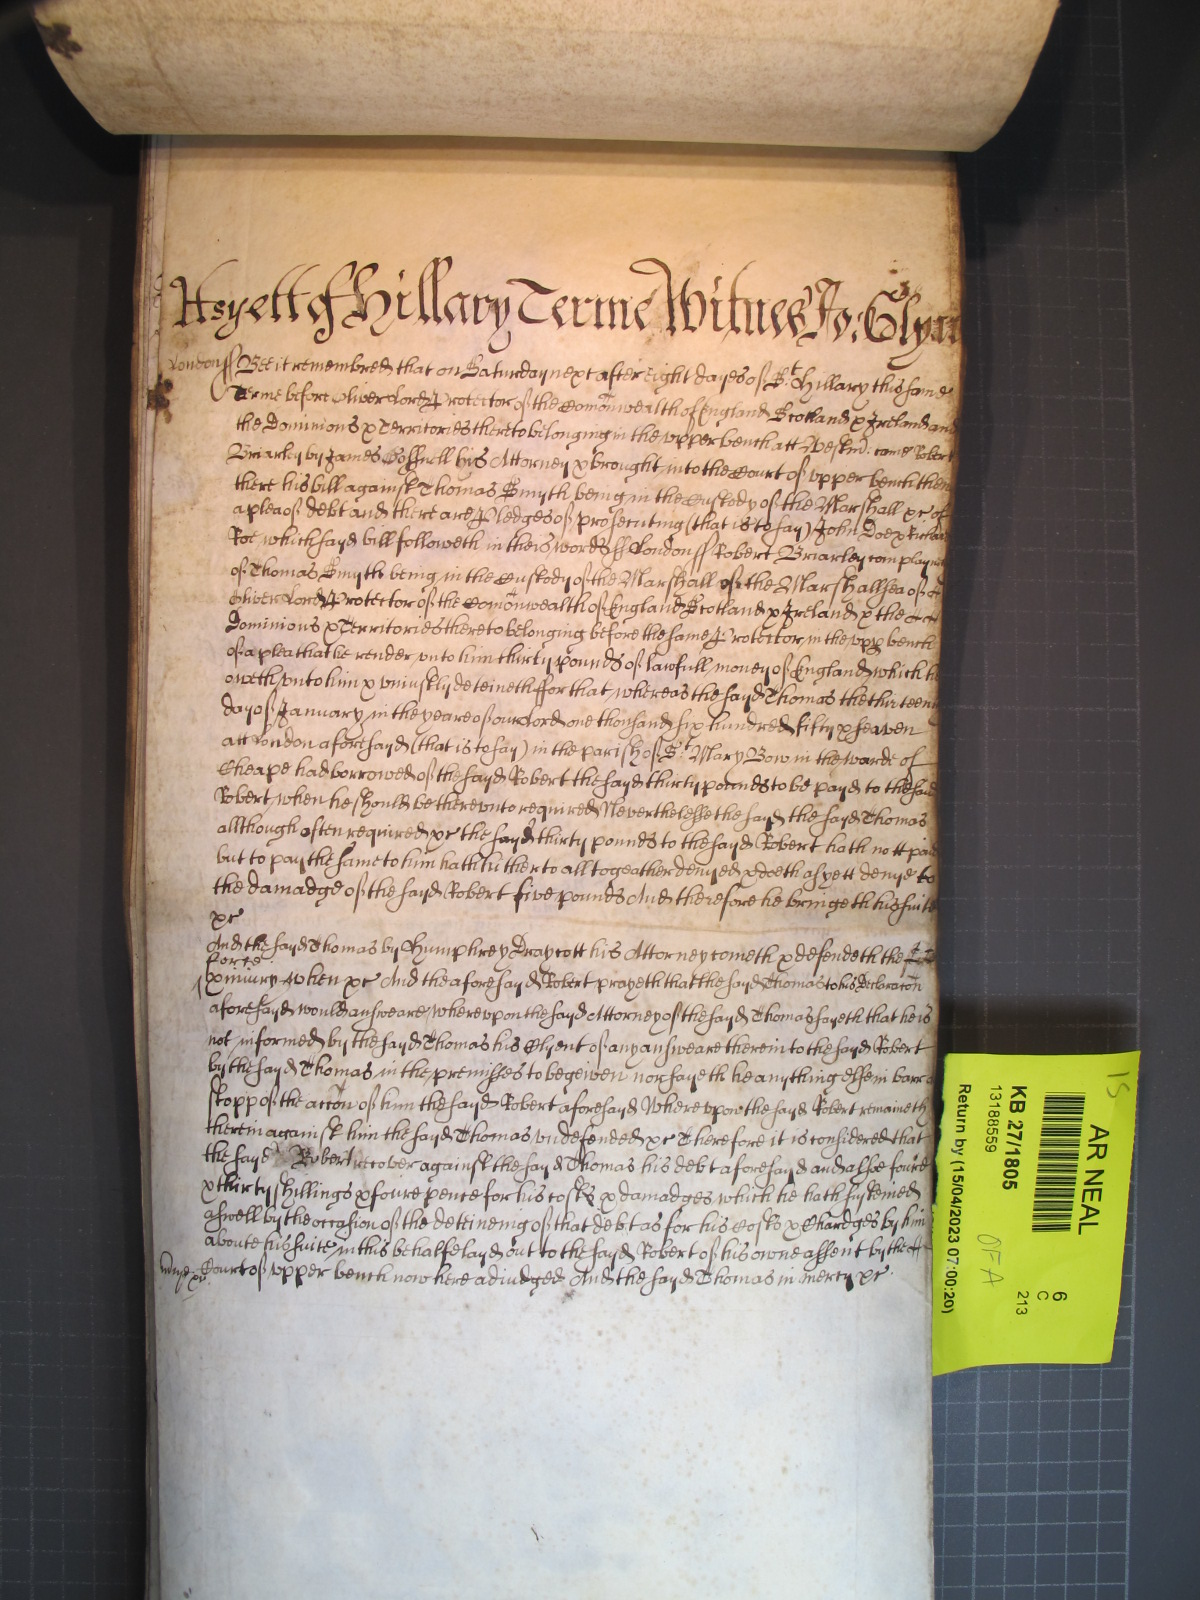 As yett of Hillary Terme Witnes Jo: Glynn
London ss Bee it remembred that on Saturday next after eight dayes of St Hillary this same
Terme before Oliver Lord Protector of the Comonwealth of England Scotland & Ireland and
the Dominions & Territories thereto belonging in the upper bench att Westmr: came Robert
Briarley by James Gossnell his Attorney & brought into the Court of upper bench then
there his bill against Thomas Smyth being in the Custody of the Marshall &c of
a plea of debt and there are Pledges of prosecuting (that is to say) John Doe & Richard
Roe which sayd bill followeth in theis words ss London ss Robert Briarley complayneth
of Thomas Smyth being in the Custody of the Marshall of the Marshallsea of
Oliver Lord Protector of the Comonwealth of England Scotland & Ireland & the
Dominions & Territories thereto belonging before the same Protector in the upp bench
of a plea that he render unto him thirty pounds of lawfull money of England which he
oweth unto him & uniustly deteineth ffor that whereas the sayd Thomas the thirteenth
day of January in the yeare of our Lord one thousand six hundred fifty & seaven
att London aforesayd (that is to say) in the parish of St Mary Bow in the warde of
Cheape had borrowed of the sayd Robert the sayd thirty pounds to be payd to the said
Robert when he should be thereunto required Neverthelesse the sayd the sayd Thomas
allthough often required &c the sayd thirty pounds to the sayd Robert hath nott paid
but to pay the same to him hath hitherto alltogeather denyed & doeth as yett denye to
the damadge of the sayd Robert five pounds And therefore he bringeth his suite
&c
And the sayd Thomas by Humphrey Draycott his Attorney cometh & defendeth the
force
& iniury when &c And the aforesayd Robert prayeth that the sayd Thomas to his Declaracon
aforesayd would answeare whereupon the sayd Attorney of the sayd Thomas sayeth that he is
not informed by the sayd Thomas his Clyent of any answeare therein to the sayd Robert
by the sayd Thomas in the premisses to be geiven nor sayeth he anything else in barr or
stopp of the accon of him the sayd Robert aforesayd Whereupon the sayd Robert remaineth
therein against him the sayd Thomas undefended &c Therefore it is considered that
the sayd Robert recover against the sayd Thomas his debt aforesayd and allsoe foure
& thirty shillings & foure pence for his costs & damadges which he hath susteined
aswell by the occasion of the deteineing of that debt as for his Costs & Chardges by him
aboute his suite in this behalfe layd out to the sayd Robert of his owne assent by the
Court of upper bench now here adiudged And the sayd Thomas in mercy &c
AR NEAL
KB 27/1805
13188559
Return by (15/04/2023 07:00:20)
6
C
213
OFA
15